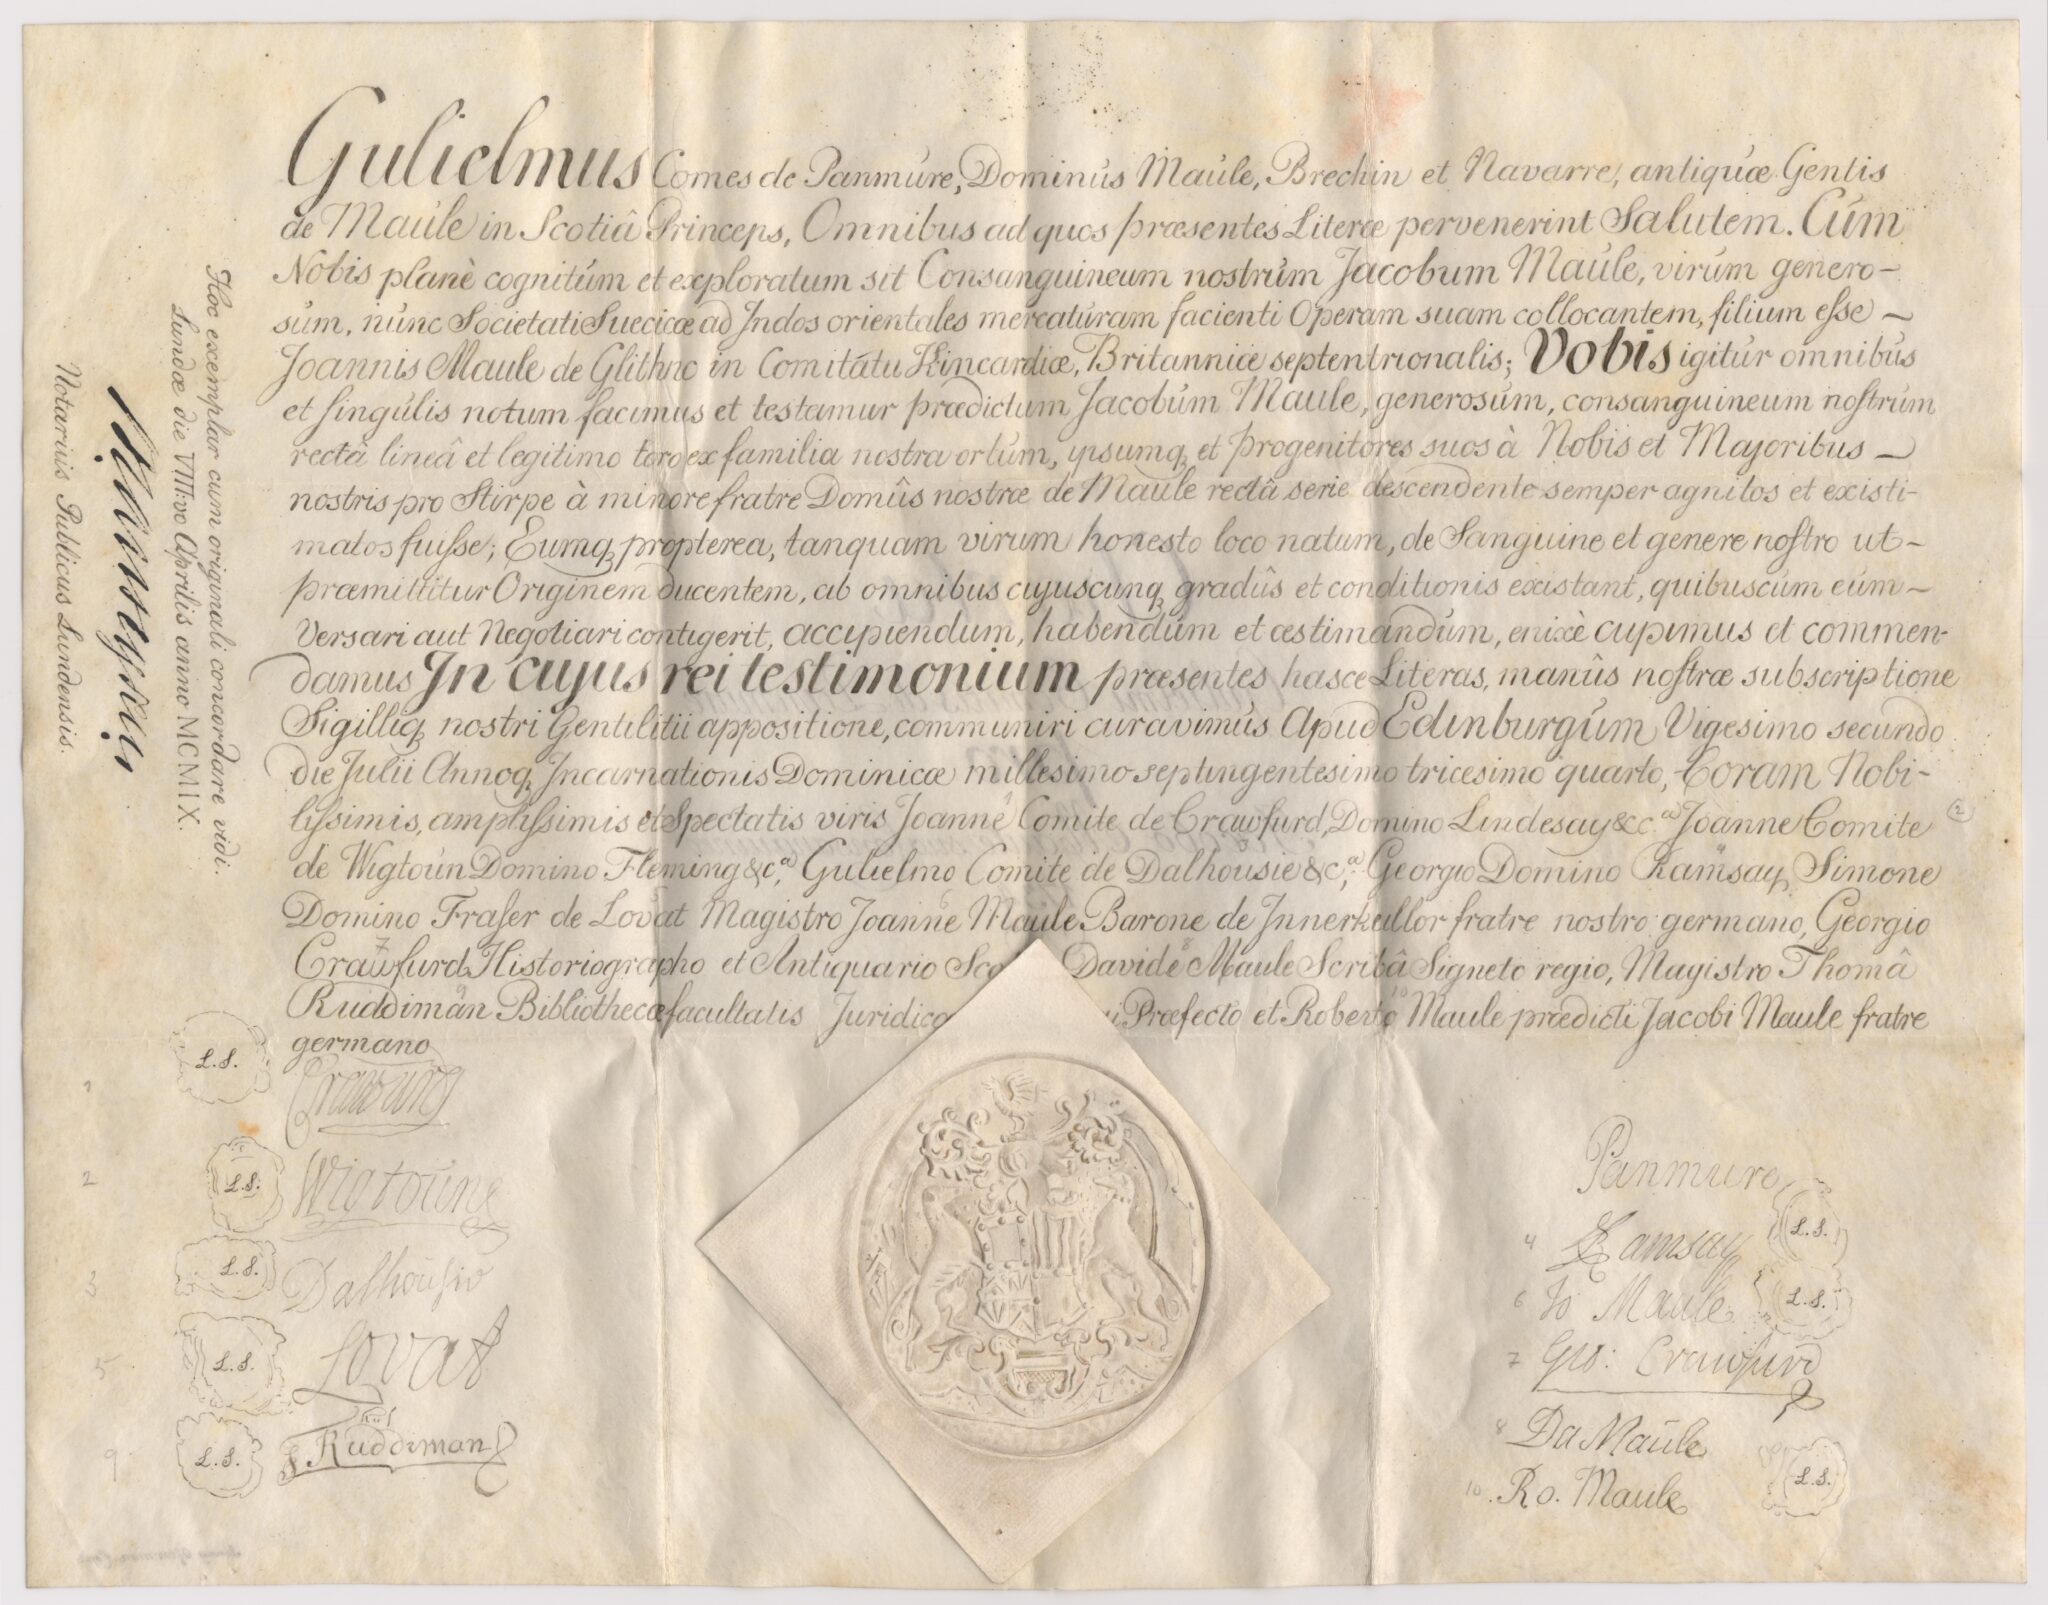 Gulielmus Comes de Panmure, Dominus Maule, Brechin et Navarre, antiquæ Gentis
de Maule in Scotiâ Princeps, Omnibus ad quos præsentes Literæ pervenerint Salutem. Cum
Nobis planè cognitum et exploratum sit Consanguineum nostrum Jacobum Maule, virum genero-
sum, nunc Societati Suecicæ ad Indos orientales mercaturam facienti Operam suam collocantem, filium esse ~
Joannis Maule de Glithno in Comitatu Kincardiæ, Britanniæ septentrionalis; Vobis igitur omnibus
et singulis notum facimus et testamur prædictum Jacobum Maule, generosum, consanguineum nostrum
rectâ lineâ et legitimo toro ex familia nostra ortum, ipsumq et progenitores suos à Nobis et Majoribus ~
nostris pro Stirpe à minore fratre Domûs nostræ de Maule rectâ serie descendente semper agnitos et existi-
matos fuisse; Eumq propterea, tanquam virum honesto loco natum, de Sanguine et genere nostro ut-
præmittitur Originem ducentem, ab omnibus cujuscunq gradûs et conditionis existant, quibuscum eum ~
Versari aut Negotiari contigerit, accipiendum, habendum et æstimandum, enixè cupimus et commen-
damus In cujus rei testimonium præsentes hasce Literas, manûs nostræ subscriptione
Sigilliq nostri Gentilitii appositione, communiri curavimus Apud Edinburgum Vigesimo secundo
die Julii Annoq Incarnationis Dominicæ millesimo septingentesimo tricesimo quarto, Coram Nobi-
lissimis, amplissimis et Spectatis viris Joanne Comite de Crawfurd, Domino Lindesay &c.a Joanne Comite
de Wigtoun Domino Fleming &c.a, Gulielmo Comite de Dalhousie &c.a, Georgio Domino Ramsay, Simone
Domino Fraser de Lovat Magistro Joanne Maule Barone de Innerkellor fratre nostro germano, Georgio
Crawfurd Historiographo et Antiquario Davide Maule Scribâ Signeto regio, Magistro Thomâ
Ruddiman Bibliothecæ facultatis Præfecto et Roberto Maule prædicti Jacobi Maule fratre
germano
L.S. Crawfurd
2 L.S. Wigtoune
3 L.S. Dalhousie
5 L.S. Lovat
9 L.S. Ruddiman
Panmure
4 Ramsay L.S.
6 Jo Maule L.S.
7 Geo: Crawfurd
8 Da Maule
10. Ro. Maule L.S.
Hoc exemplar cum originali concordare vidi.
Lundæ die VIII:vo Aprilis anno MCMIX.
Notarius Publicus Lundensis.
2